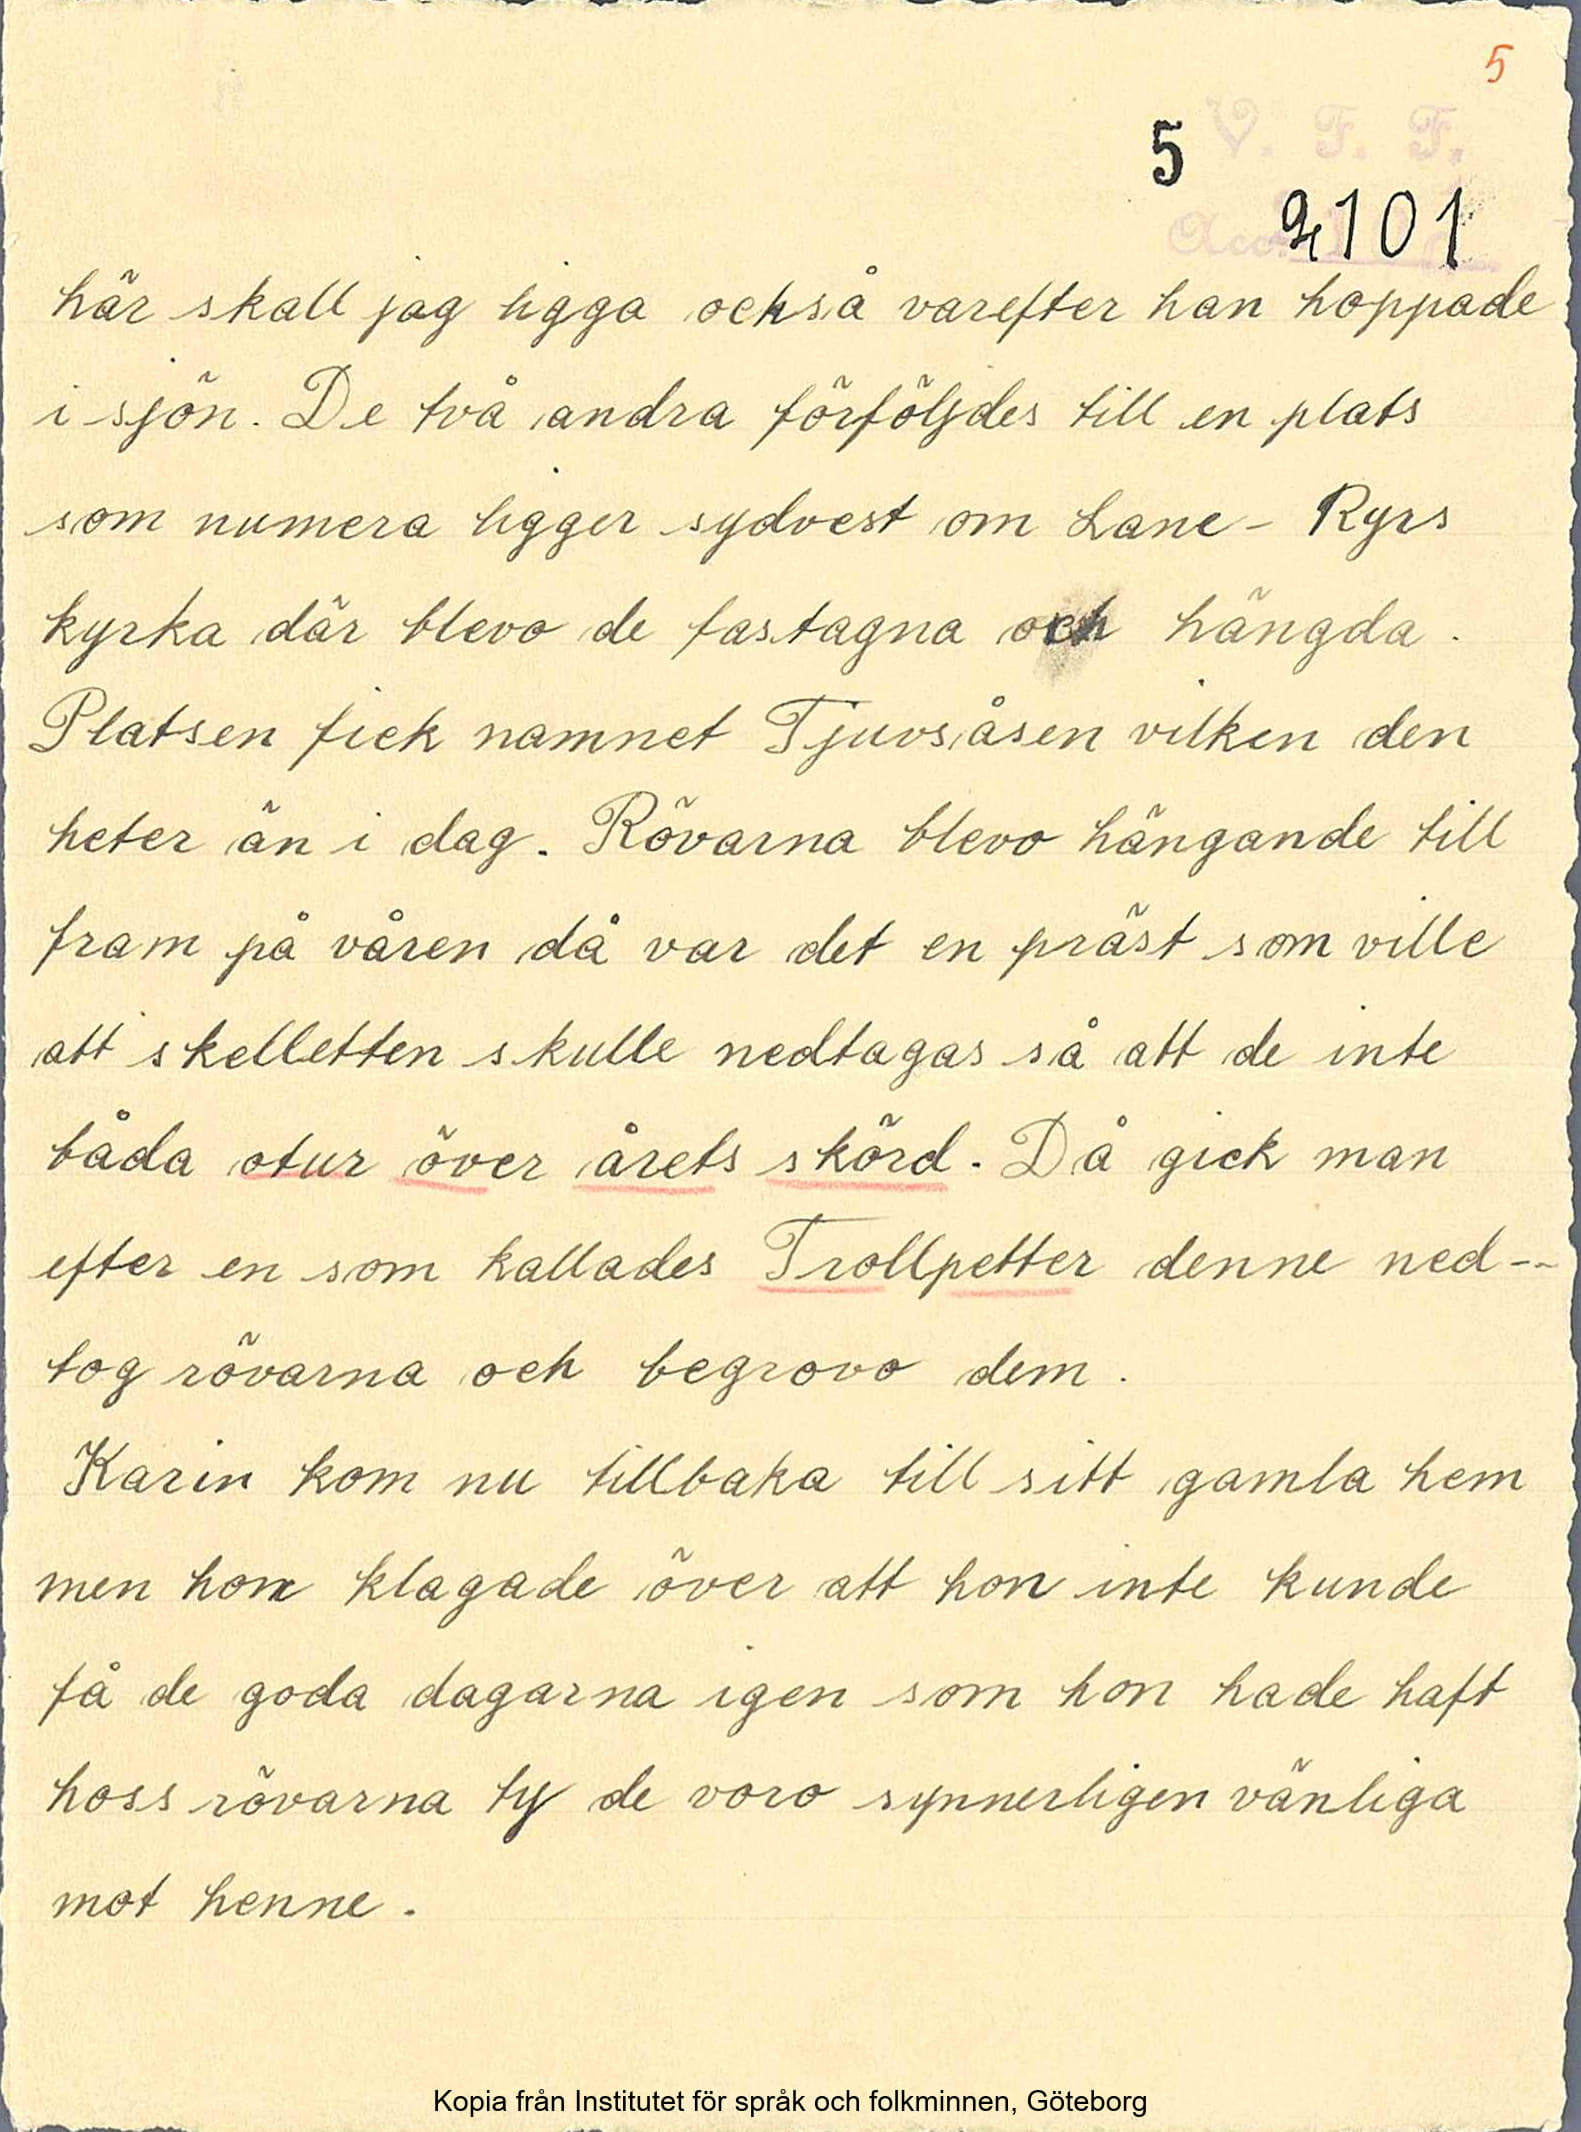 5
5 V. F. F.
Acc. 2101
här skall jag ligga också varefter han hoppade
i sjön. De två andra förföljdes till en plats
som numera ligger sydvest om Lane- Ryrs
kyrka där blevo de fastagna och hängda.
Platsen fick namnet Tjuvsåsen vilken den
heter än i dag. Rövarna blevo hängande till
fram på våren då var det en präst som ville
att skelletten skulle nedtagas så att de inte
båda otur över årets skörd. Då gick man
efter en som kallades Trollpetter denne ned--
tog rövarna och begrovo dem.
Karin kom nu tillbaka till sitt gamla hem
men hon klagade över att hon inte kunde
få de goda dagarna igen som hon hade haft
hoss rövarna ty de voro synnerligen vänliga
mot henne.
Kopia från Institutet för språk och folkminnen, Göteborg